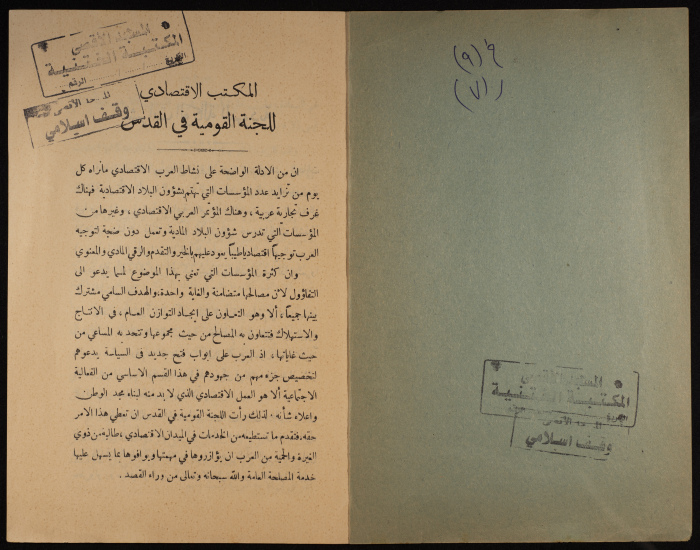 المسجد الأقصى
المكتبة الختنية
التاريخ الرقم
المسجد الأقصى
وقف اسلامي
المكتب الاقتصادي
للجنة القومية في القدس
ان من الادلة الواضحة على نشاط العرب الاقتصادي مانراه كل
يوم من تزايد عدد المؤسسات التي تهتم بشؤون البلاد الاقتصادية فهناك
غرف تجارية عربية ، وهناك المؤتمر العربي الاقتصادي ، وغيرها من
المؤسسات التي تدرس شؤون البلاد المادية وتعمل دون ضجة لتوجيه
العرب توجيهاً اقتصادياطيباً يعود عليهم بالخير والتقدم والرقي المادي والمعنوي
وان كثرة المؤسسات التي تعنى بهذا الموضوع لمما يدعو الى
التفاؤول لان مصالحها متضامنة والغاية واحدة، والهدف السامي مشترك
بينها جميعاً ، ألا وهو التعاون على ايجاد التوازن العام ، في الانتاج
والاستهلاك فتتعاون به المصالح من حيث مجموعها وتتحد به المساعي من
حيث غاياتها ، اذ العرب على ابواب فتح جديد في السياسة يدعوهم
لتخصيص جزء مهم من جهودهم في هذا القسم الاساسي من الفعالية
الاجتماعية ألا هو العمل الاقتصادي الذي لا بد منه لبناء مجد الوطن
واعلاء شأنه . لذلك رأت اللجنة القومية في القدس ان تعطي هذا الامر
حقه، فتقدم ما تستطيعه من الخدمات في الميدان الاقتصادي ، طالبة من ذوي
الغيرة والحمية من العرب ان يؤازروها في مهمتها ويوافوها بما يسهل عليها
خدمة المصلحة العامة والله سبحانه وتعالى من وراء القصد .
(٩)
(٧)
المسجد الأقصى
المكتبة الختنية
التاريخ
وقف اسلامي